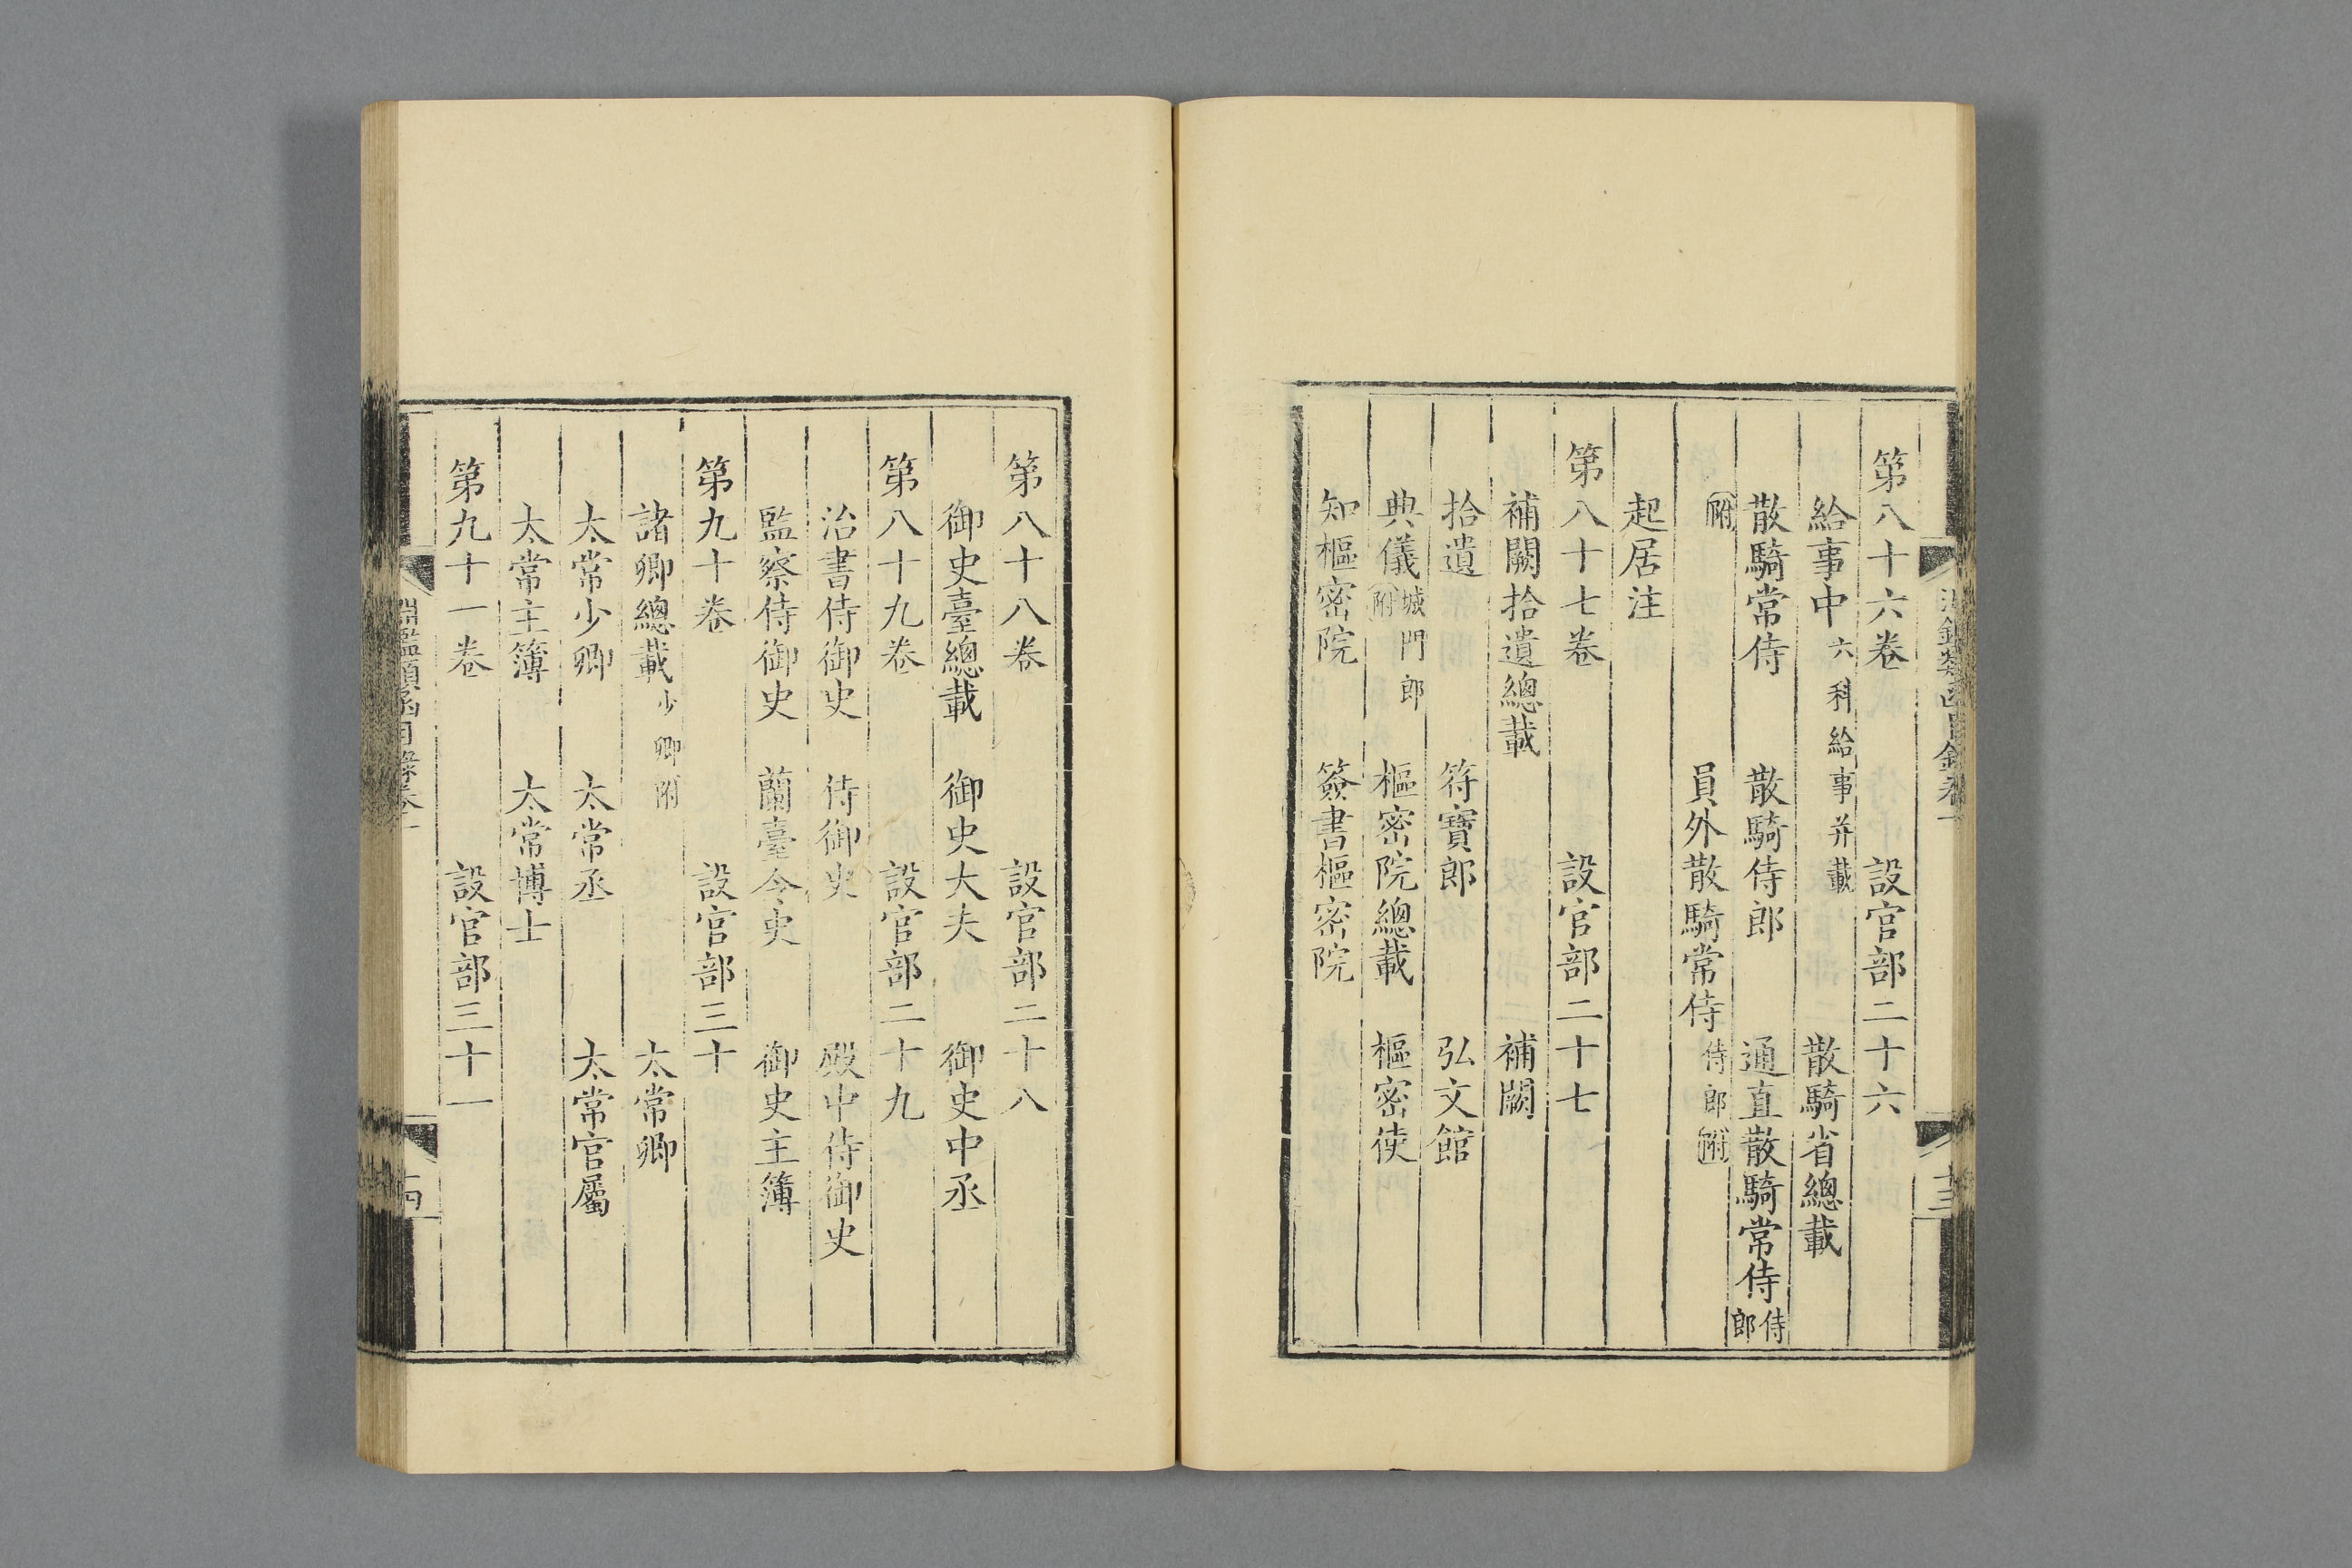 第八十六卷 設官部二十六
給事中 六科給事并載 散騎省總載
散騎常侍 散騎侍郎 通直散騎常侍 侍郎
附 員外散騎常侍 侍郎附
起居注
第八十七卷 設官部二十七
補闕拾遺總載 補闕
拾遺 符寶郎 弘文館
典儀 城門郎附 樞密院總載 樞密使
知樞密院 簽書樞密院
十三
第八十八卷 設官部二十八
御史臺總載 御史大夫 御史中丞
第八十九卷 設官部二十九
治書侍御史 侍御史 殿中侍御史
監察侍御史 蘭臺令史 御史主簿
第九十卷 設官部三十
諸卿總載 少卿附 太常卿
太常少卿 太常丞 太常官屬
太常主簿 太常博士
第九十一卷 設官部三十一
淵鑑類函目錄卷一